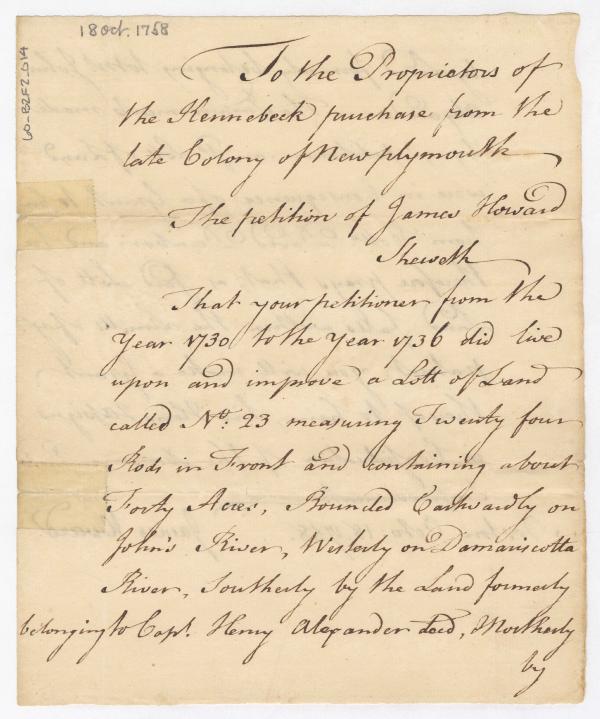 18 Oct. 1758
60-B2F2-D14
To the Proprietors of
the Kennebeck purchase from the
late Colony of Newplymouth
The petition of James Howard
Sheweth
That your petitioner from the
Year 1730 to the Year 1736 did live
upon and improve a Lott of Land
called No. 23 measuring Twenty four
Rods in Front and containing about
Forty Acres, Bounded Eastwardly on
John's River, Westerly on Damariscotta
River, Southerly by the Land formerly
belonging to Capt. Henry Alexander Decd, Northerly
by